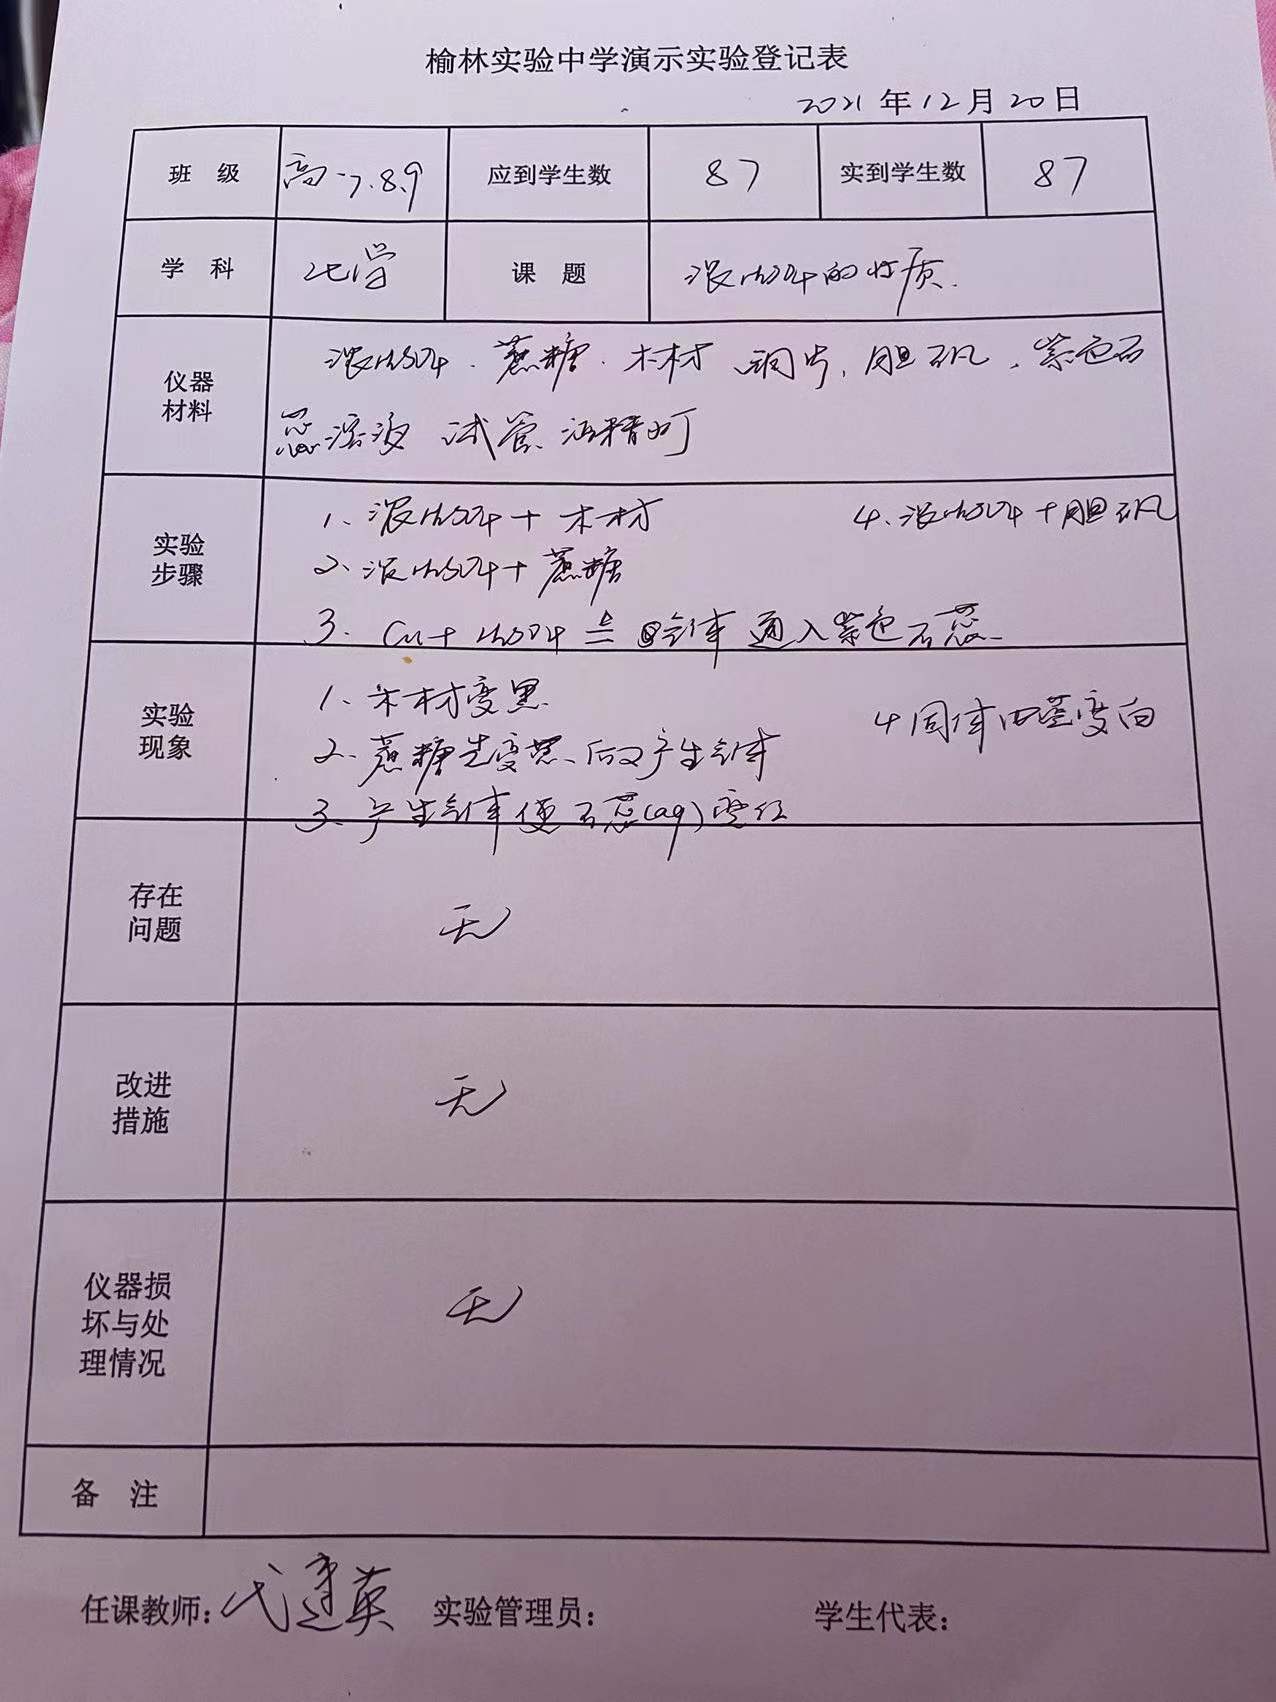 榆林实验中学演示实验登记表
2021年12月20日
班 级 高一7.8.9 应到学生数 87 实到学生数 87
学 科 化学 课 题 浓H2SO4的性质.
仪器材料 浓H2SO4. 蔗糖. 木材 铜片, 胆矾, 紫色石
蕊溶液 试管、酒精灯
实验步骤 1、浓H2SO4+木材 4、浓H2SO4+胆矾
2、浓H2SO4+蔗糖
3. Cu+H2SO4 ≜ 气体 通入紫色石蕊
实验现象 1、木材变黑 4 固体由蓝变白
2、蔗糖先变黑、后又产生气体
3、产生气体使石蕊(aq)变红
存在问题 无
改进措施 无
仪器损坏与处理情况 无
备 注
任课教师: 代建英 实验管理员: 学生代表: